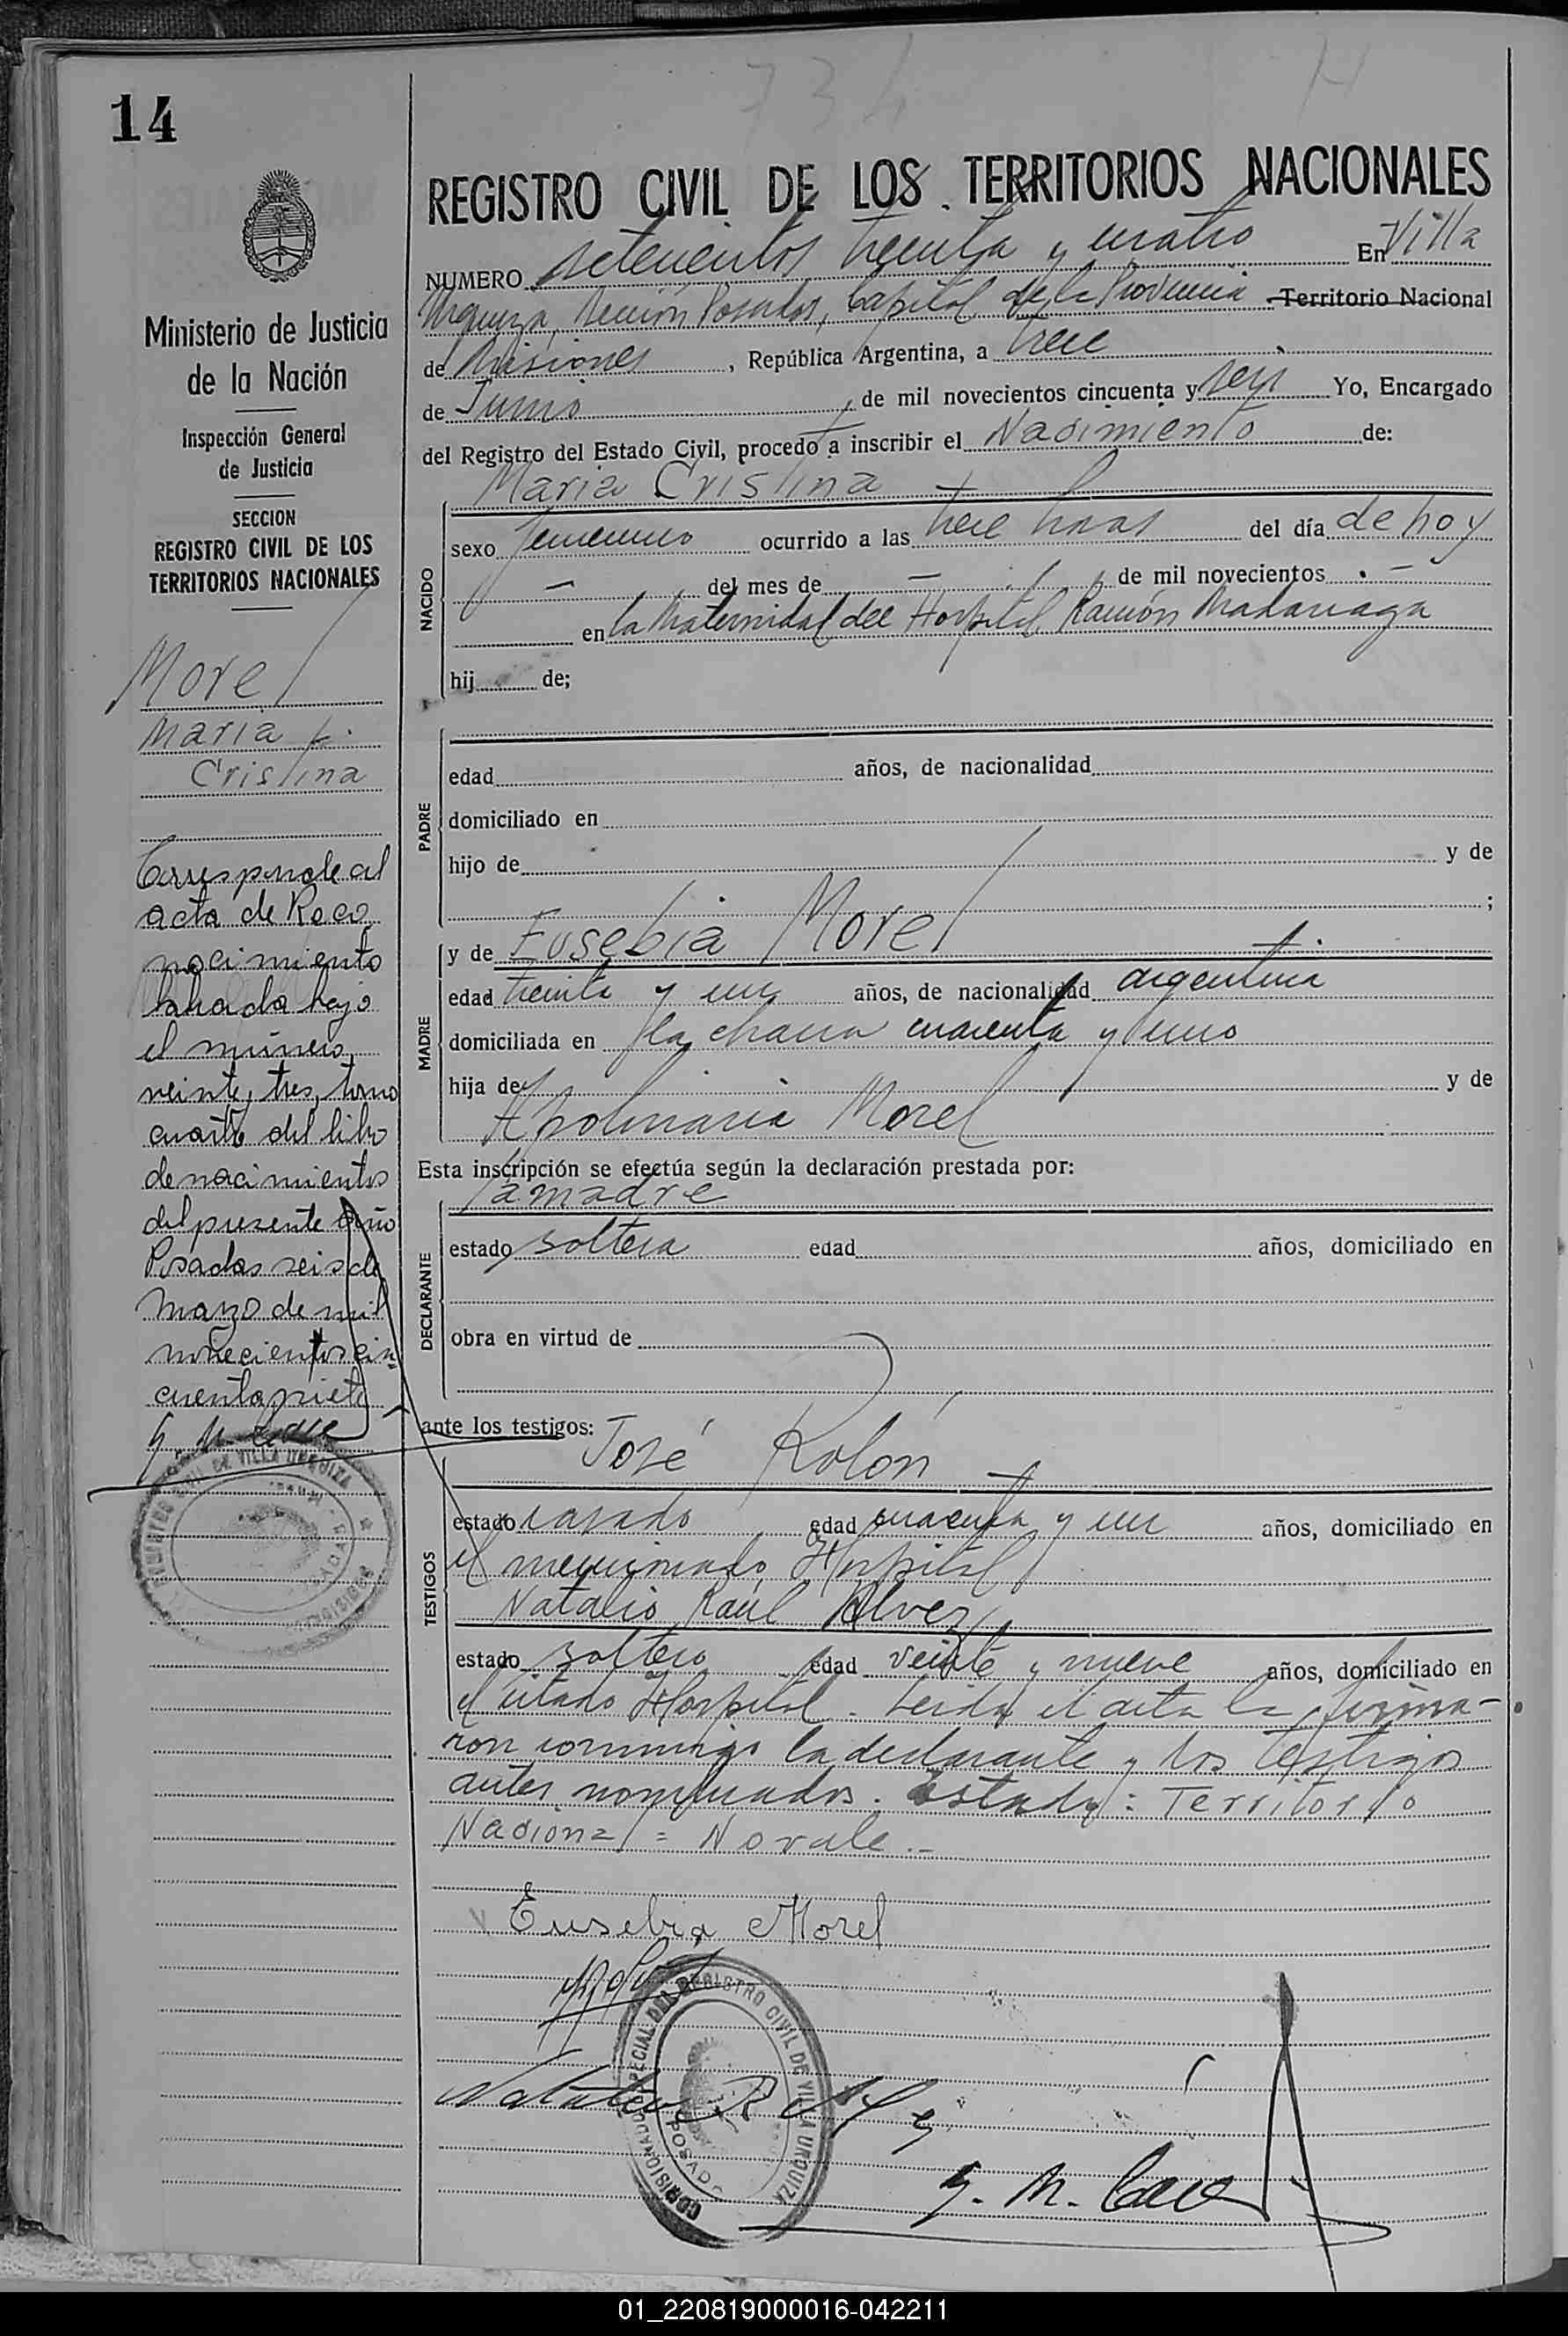 734
14
REGISTRO CIVIL DE LOS TERRITORIOS NACIONALES
NUMERO setecientos treinta y cuatro En Villa
Urquiza, Sección Posadas, Capital de la Provincia Territorio Nacional
de Misiones, República Argentina, a trece
de Junio, de mil novecientos cincuenta y seis Yo, Encargado
del Registro del Estado Civil, procedo a inscribir el Nacimiento de:
NACIDO
Maria Cristina
sexo femenino ocurrido a las trece horas del día de hoy
— del mes de — de mil novecientos —
en la Maternidad del Hospital Ramón Madariaga
hij de;
PADRE
edad años, de nacionalidad
domiciliado en
hijo de y de
;
MADRE
y de Eusebia Morel
edad treinta y un años, de nacionalidad argentina
domiciliada en la chacra cuarenta y uno
hija de y de
Apolinaria Morel
Esta inscripción se efectúa según la declaración prestada por:
DECLARANTE
la madre
estado soltera edad años, domiciliado en
obra en virtud de
ante los testigos:
TESTIGOS
José Rolón
estado casado edad cuarenta y un años, domiciliado en
el mencionado Hospital
Natalio Raúl Alvez
estado soltero edad veinte y nueve años, domiciliado en
el citado Hospital. Leida el acta la firma-
ron conmigo la declarante y los testigos
antes nombrados. Estado: Territorio
Nacional = No vale.-
Eusebia Morel
Natalio R
G. M.
COMISIONADO ESPECIAL DEL REGISTRO CIVIL DE VILLA URQUIZA
POSADAS
Ministerio de Justicia
de la Nación
Inspección General
de Justicia
SECCION
REGISTRO CIVIL DE LOS
TERRITORIOS NACIONALES
Morel
Maria
Cristina
Corresponde al
acta de Reco
nocimiento
labrada bajo
el número
veinte y tres, tomo
cuarto del libro
de nacimientos
del presente año
Posadas seis de
Marzo de mil
novecientos cin=
cuenta siete
G. M.
DE VILLA URQUIZA
01_220819000016-042211